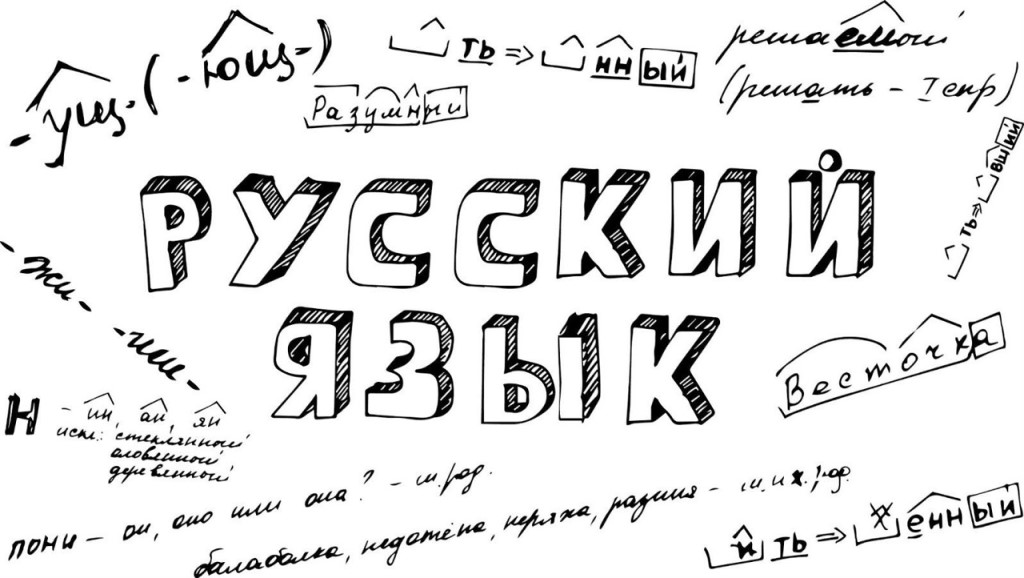 -ущ-(-ющ-)
ть ⇒ нн ый
решаемый
(решать - I спр)
Разумный
ть ⇒ вш ий
РУССКИЙ
ЯЗЫК
- жи -
- ши -
Весточка
Н - ин, ан, ян
искл: стеклянный
оловянный
деревянный
пони - он, оно или она? - м.род.
балаболка, недотёпа, неряха, разиня - м. и ж. род.
и ть ⇒ енн ый